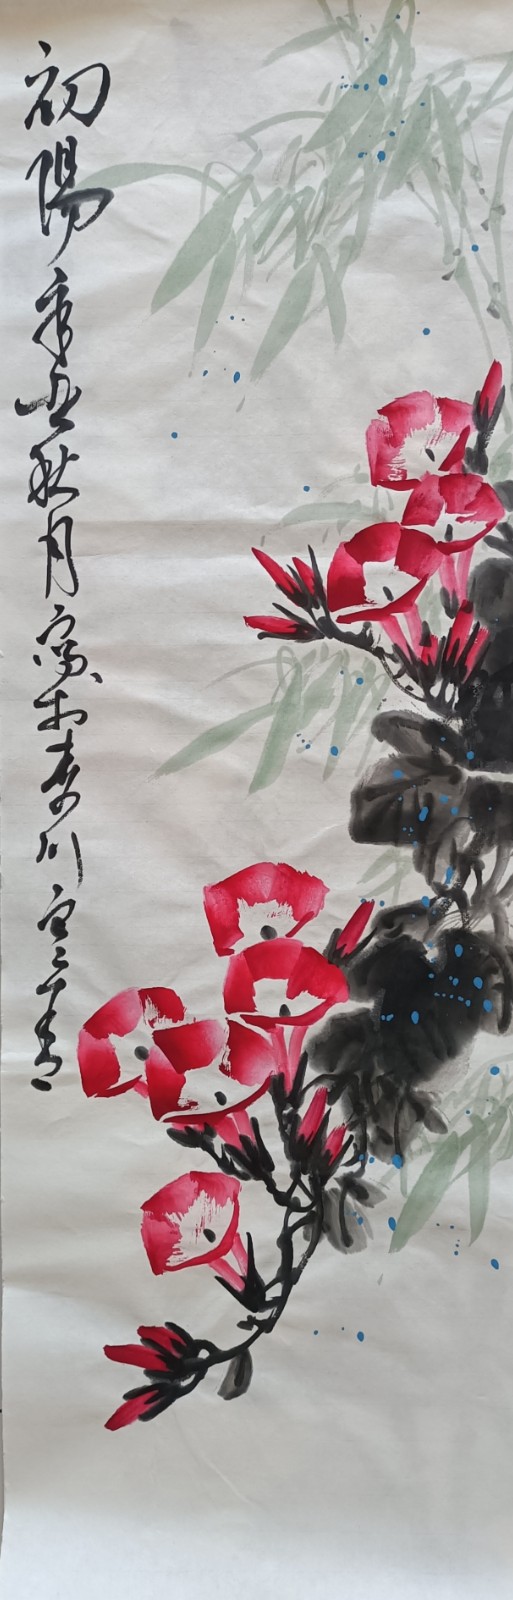 初陽辛丑秋月寫於秦川